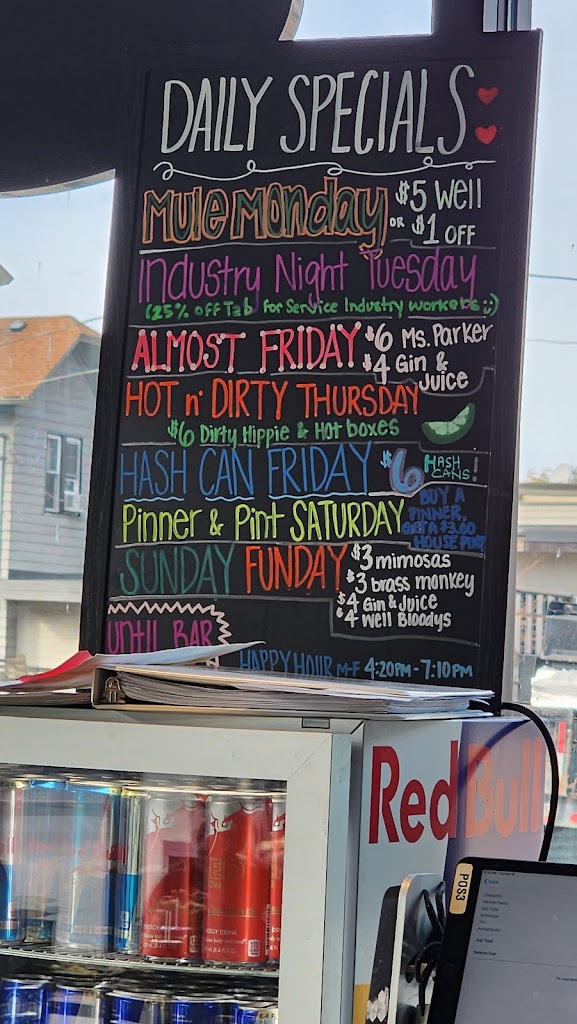 DAILY SPECIALS
MULE MONDAY $5 Well
OR $1 OFF
INDUSTRY NIGHT TUESDAY
(25% OFF Tab for Service Industry workers :)
ALMOST FRIDAY $6 Ms. Parker
$4 Gin &
Juice
HOT n' DIRTY THURSDAY
$6 Dirty Hippie & Hot boxes
HASH CAN FRIDAY $6 HASH
CANS!
Pinner & Pint SATURDAY
BUY A
PINNER,
GET A $3.60
HOUSE PINT
SUNDAY FUNDAY $3 mimosas
$3 brass monkey
$4 Gin & Juice
$4 Well Bloodys
UNTIL BAR
HAPPY HOUR M-F 4:20PM - 7:10PM
Red Bull
POS3
ENERGY DRINK